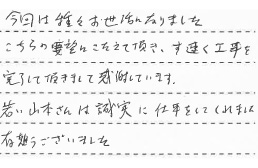 今回は種々お世話になりました
こちらの要望にこたえて頂き、す速く工事を
完了して頂きまして感謝しています。
若い山本さんは誠実に仕事をしてくれました
有難うございました